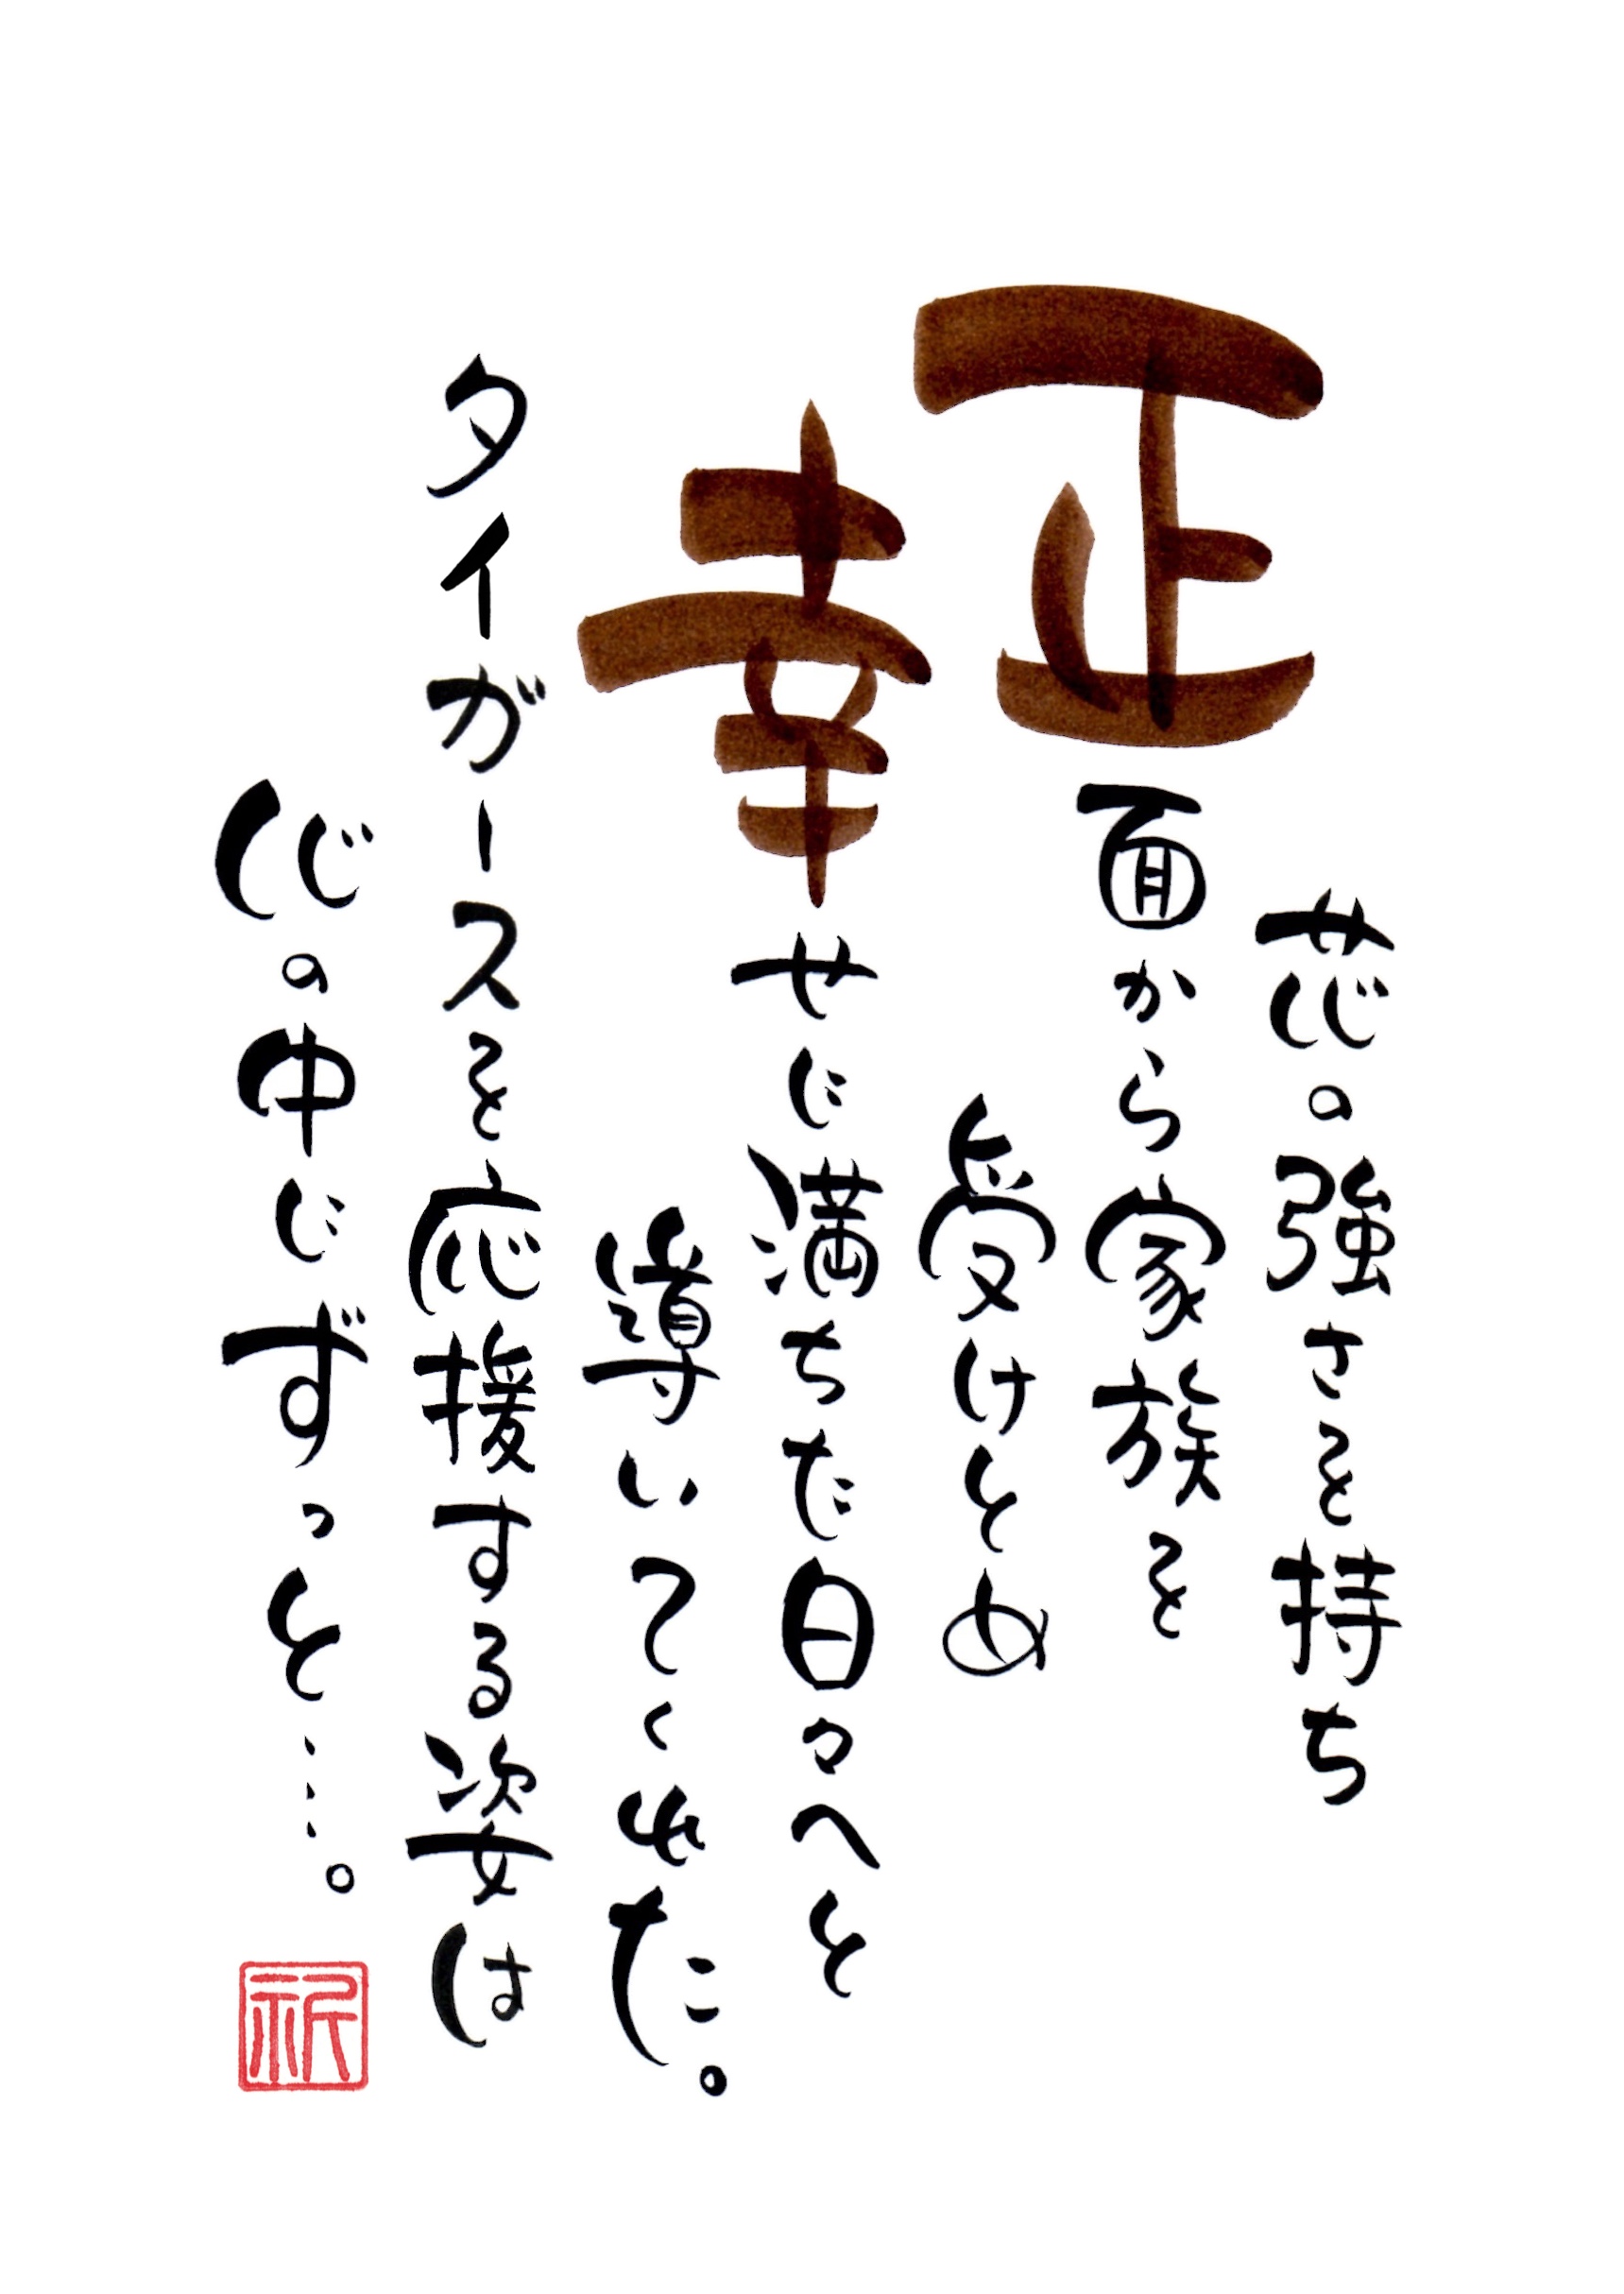 芯の強さを持ち
正面から家族を
受けとめ
幸せに満ちた日々へと
導いてくれた。
タイガースを応援する姿は
心の中にずっと…。